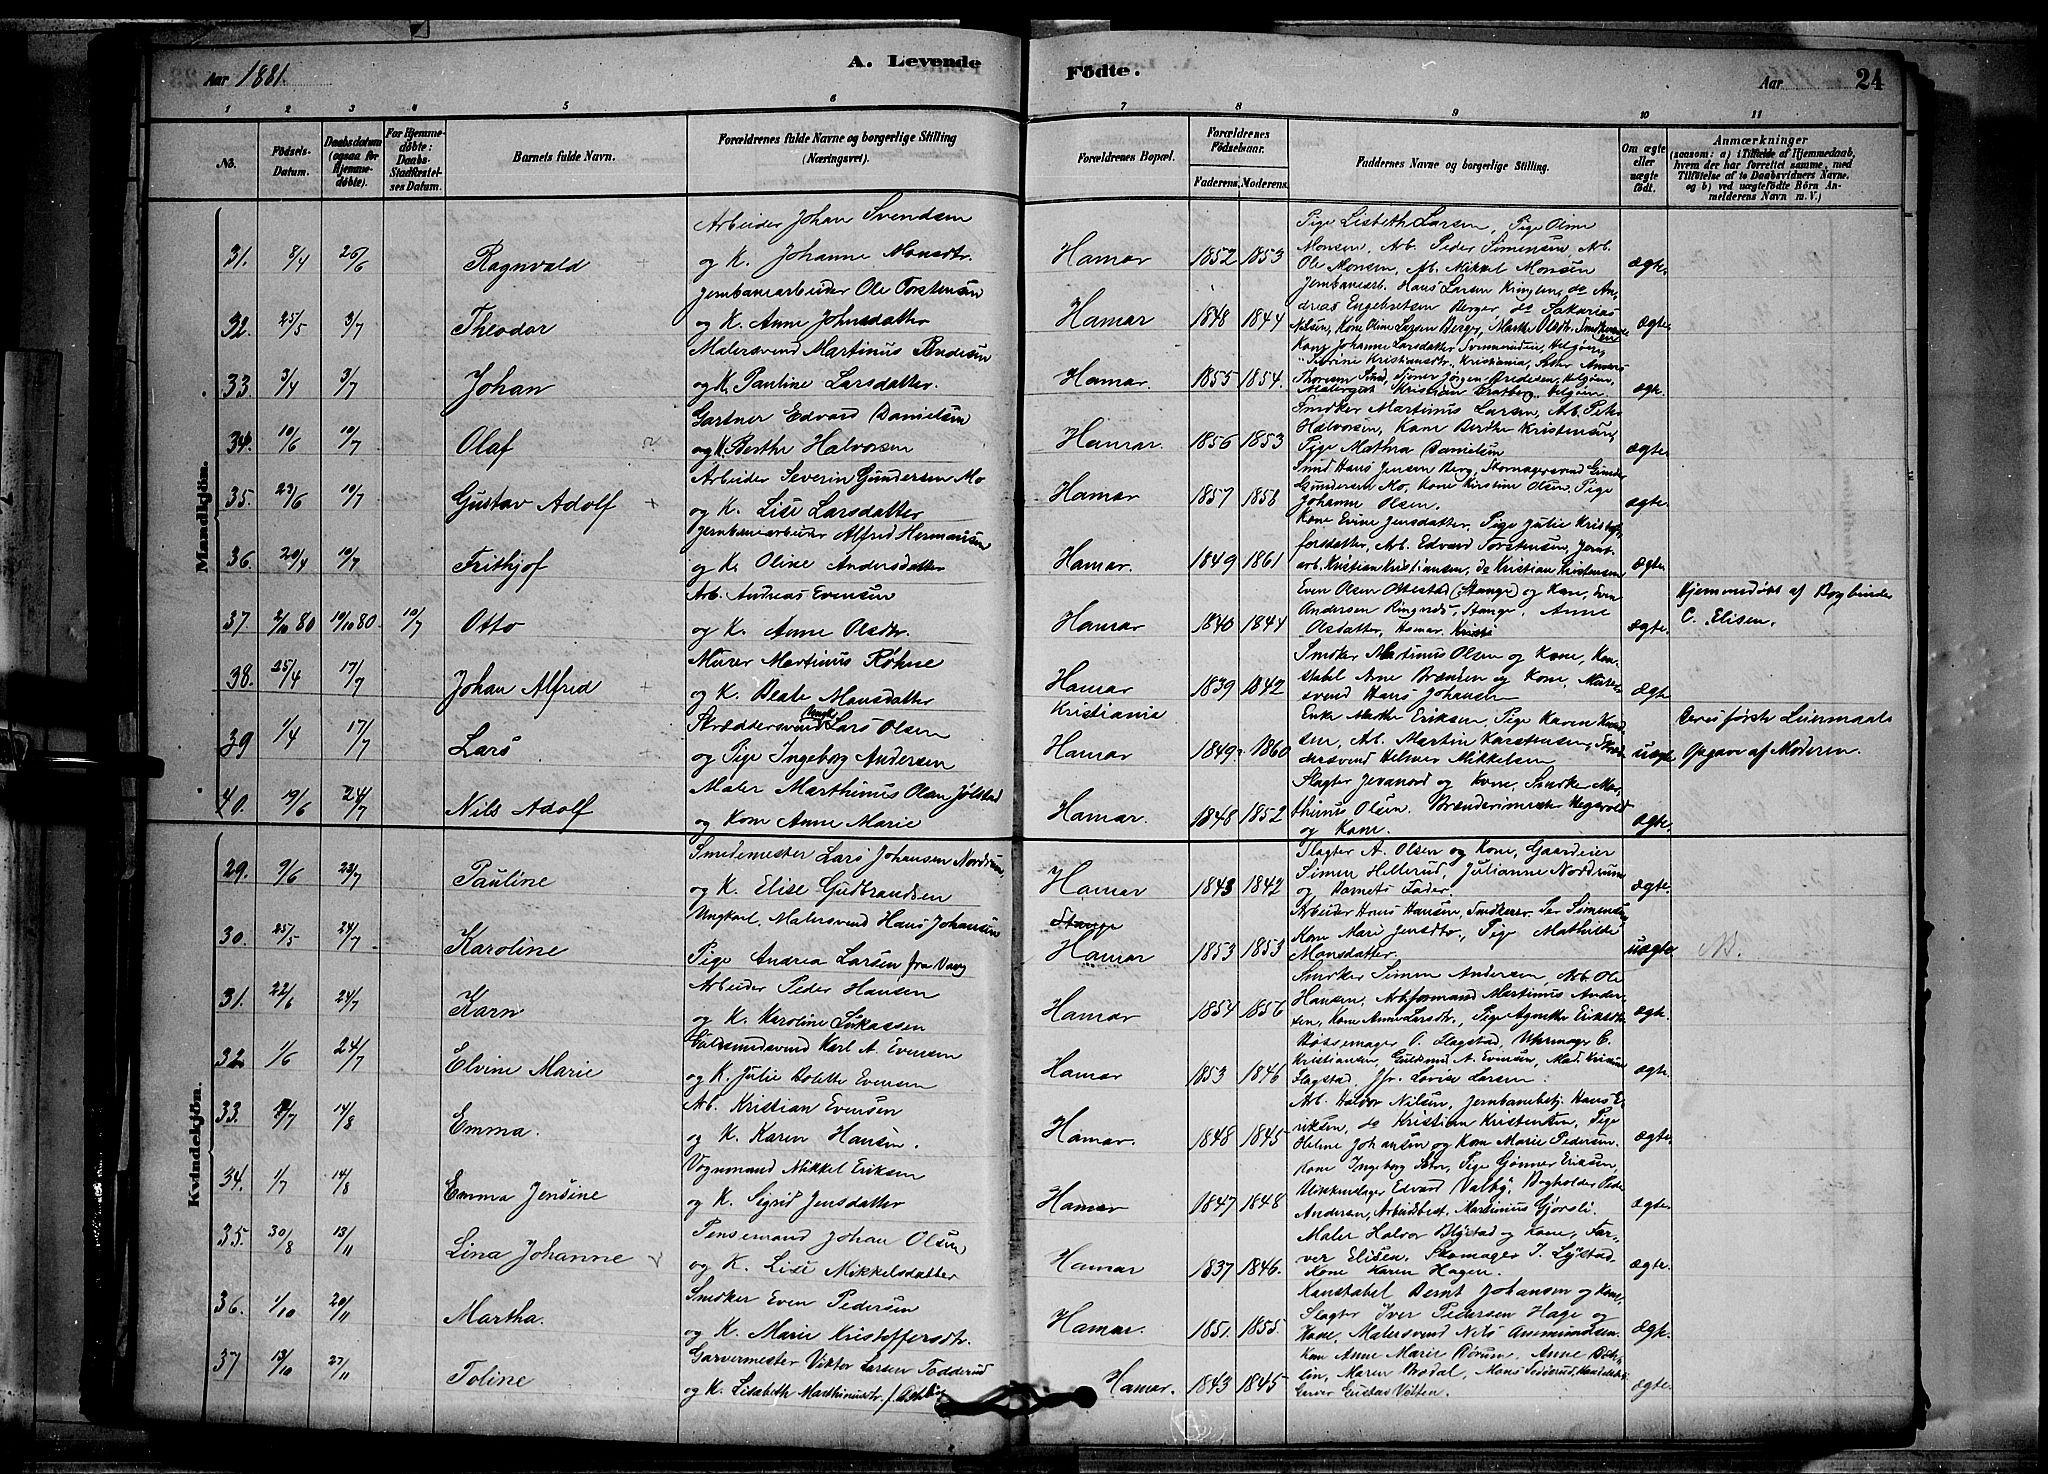 Aar 1881.
A. Levende
Födte.
Aar
24
1 2 3 4 5 6 7 8 9 10 11
No.
Födsels-Datum.
Daabsdatum (ogsaa for Hjemmedøbte).
For Hjemmedøbte: Daabs-Stadfæstelses Datum.
Barnets fulde Navn.
Forældrenes fulde Navne og borgerlige Stilling (Næringsvei).
Forældrenes Bopæl.
Forældrenes Födselsaar.
Faderens. Moderens.
Faddernes Navne og borgerlige Stilling.
Om ægte eller uægte födt.
Anmærkninger
(saasom: a) i Tilfælde af Hjemmedaab, hvem der har forrettet samme, med Tilföielse af to Daabsvidners Navne. og b) ved uægtefödte Börn Anmelderens Navn m. V.)
Mandkjön.
31. 8/4 26/6 Ragnvald
Arbeider Johan Svendsen
og K. Johanne Monsdtr.
Hamar 1852 1853
Pige Lisbeth Larsen, Pige Oline
Monsen, Arb. Peder Simensen, Arb.
Ole Monsen, Arb. Mikkel Monsen
ægte.
32. 25/5 3/7 Theodor
Jernbanearbeider Ole Torstensen
og K. Anne Johnsdatter
Hamar 1848 1844
Jernbanearb. Hans Larsen Kringlen, do An-
dreas Engebretsen Berger, do Sakarias
Nilsen, Kone Oline Larsen Berger, Marthe Olsdtr.
ægte.
33. 3/4 3/7 Johan
Malersvend Martinus
og K. Pauline Larsdatter.
Hamar 1855 1854.
Kone Johanne Larsdatter Helgøen,
Kristiansdtr. Kristiania, Anders
Thoresen Jörgen Helgøen,
Kristian Helgøen.
ægte.
34. 10/6 10/7 Olaf
Gartner Edvard Danielsen
og K. Berthe Halvorsen
Hamar. 1856 1853
Snedker Martinus Larsen, Arb. Peter
Halvorsen, Kone Berthe Kristensen,
Pige Mathea Danielsen
ægte.
35. 23/6 10/7 Gustav Adolf +
Arbeider Severin Gundersen Mo
og K. Lise Larsdatter
Hamar 1857 1858
Smed Hans Jensen Berg, Skomagersvend
Gundersen Mo, Kone Kirstine Olsen, Pige
Johanne Olsen.
ægte.
36. 20/4 10/7 Frithjof
Jernbanearbeider Alfred Hermansen
og K. Oline Andersdatter
Hamar. 1849 1861
Kone Evine Jensdatter. Pige Julie Kristof-
fersdatter, Arb. Edvard Torstensen, Jernb.
arb. Kristian Kristiansen, do Kristian Kristensen
ægte.
37 2/10 80 10/10 80. 10/7 Otto
Arb. Andreas Evensen
og K. Anne Olsdtr.
Hamar 1840 1844
Even Olsen Ottestad (Stange) og Kone, Even
Andersen Stange. Anne
Olsdatter, Hamar.
ægte.
Hjemmedöbt af Bogbinder
C. Elisen.
38. 25/4 17/7 Johan Alfred +
Murer Martinus Röhne
og K. Beate Monsdatter
Hamar 1839 1842
Snedker Martinus Olsen og Kone, Kon-
stabel Arne Brænden og Kone, Murer-
svend Hans Johansen
ægte
39 1/4 17/7 Lars +
Skræddersvend Lars Olsen
og Pige Ingeborg Andersen
Kristiania
Hamar 1849. 1860
Enke Marthe Eriksen, Pige Karen
Arb. Martin Karstensen, Skræd-
dersvend Helmer Mikkelsen
uægte
Deres første Leiermaal
Opgave af Moderen.
40. 19/6 24/7 Nils Adolf
Maler Marthinus Olsen Jölstad
og Kone Anne Marie
Hamar. 1848 1852
Slagter og Kone, Snedker Mar-
thinus Olsen. Brænderimester
og Kone.
ægte.
Kvindekjön.
29. 9/6 23/7 Pauline
Smedemester Lars Johansen Nordrum,
og K. Elise Gudbrandsen
Hamar 1843 1842
Slagter A. Olsen og Kone, Gaardeier
Simen Hillerud, Julianne Nordrum
og Barnets Fader.
ægte.
30. 25/5 24/7 Karoline
Ungkarl, Malersvend Hans Johansen
Pige Andrea Larsen fra Vang
Stange
Hamar 1853 1853
Arbeider Hans Hansen, Snedker Per Simensen,
Kone Mari Jensdtr., Pige Mathilde
Monsdatter.
uægte
31. 22/6 24/7 Karn
Arbeider Peder Hansen
og K. Karoline Lukassen
Hamar 1854 1856
Snedker Simen Andersen, Arb. Ole
Hansen, Arb.formand Martinus Ander-
sen, Kone Anne Larsdtr., Pige Agnethe Eriksdtr.
ægte.
32 1/6 24/7 Elvine Marie
Guldsmedsvend Karl A. Evensen
og K. Julie Bolette Evensen
Hamar 1853 1846
Bøssemager O. Slagstad, Uhrmager C.
Kristiansen, Guldsmed A. Evensen, Mad. Kristine
Slagstad, Jfr. Lovise Larsen.
ægte.
33. 1/7 14/8 Emma.
Arb. Kristian Evensen
og K. Karen Hansen.
Hamar. 1848 1845
Arb. Halvor Nilsen, Jernbanebetj. Hans E-
riksen, do Kristian Kristensen, Pige
Helene Johansen og Kone Marie Pedersen.
ægte.
34. 1/7 14/8 Emma Jensine
Vognmand Mikkel Eriksen
og K. Sigrid Jensdatter
Hamar 1847 1848
Kone Ingeborg Pige Gunner Eriksen,
Blikkenslager Edvard Valby, Bogholder Peder
Andersen, Arbeidsbest. Martinius Gjörsli.
ægte.
35. 30/8 13/11 Lina Johanne
Johan Olsen
og K. Lise Mikkelsdatter
Hamar 1837 1846.
Maler Halvor Ulystad og Kone, Far-
ver Elisen, Skomager J. Lystad,
Kone Karen Hagen.
ægte.
36. 1/10 20/11 Martha.
Snedker Even Pedersen
og K. Marie Kristoffersdtr.
Hamar. 1851. 1855.
Konstabel Bernt Johansen og Kone
Slagter Iver Pedersen Hage og
Kone, Malersvend Nils Anmundsen.
ægte.
37 13/10 27/11 Toline
Garvermester Viktor Larsen Todderud
og K. Lisabeth Marthinusdtr.
Hamar. 1843 1845
Kone Anne Marie Börum, Anne
Maren Brodal, Hans
Garver Gustav
ægte.